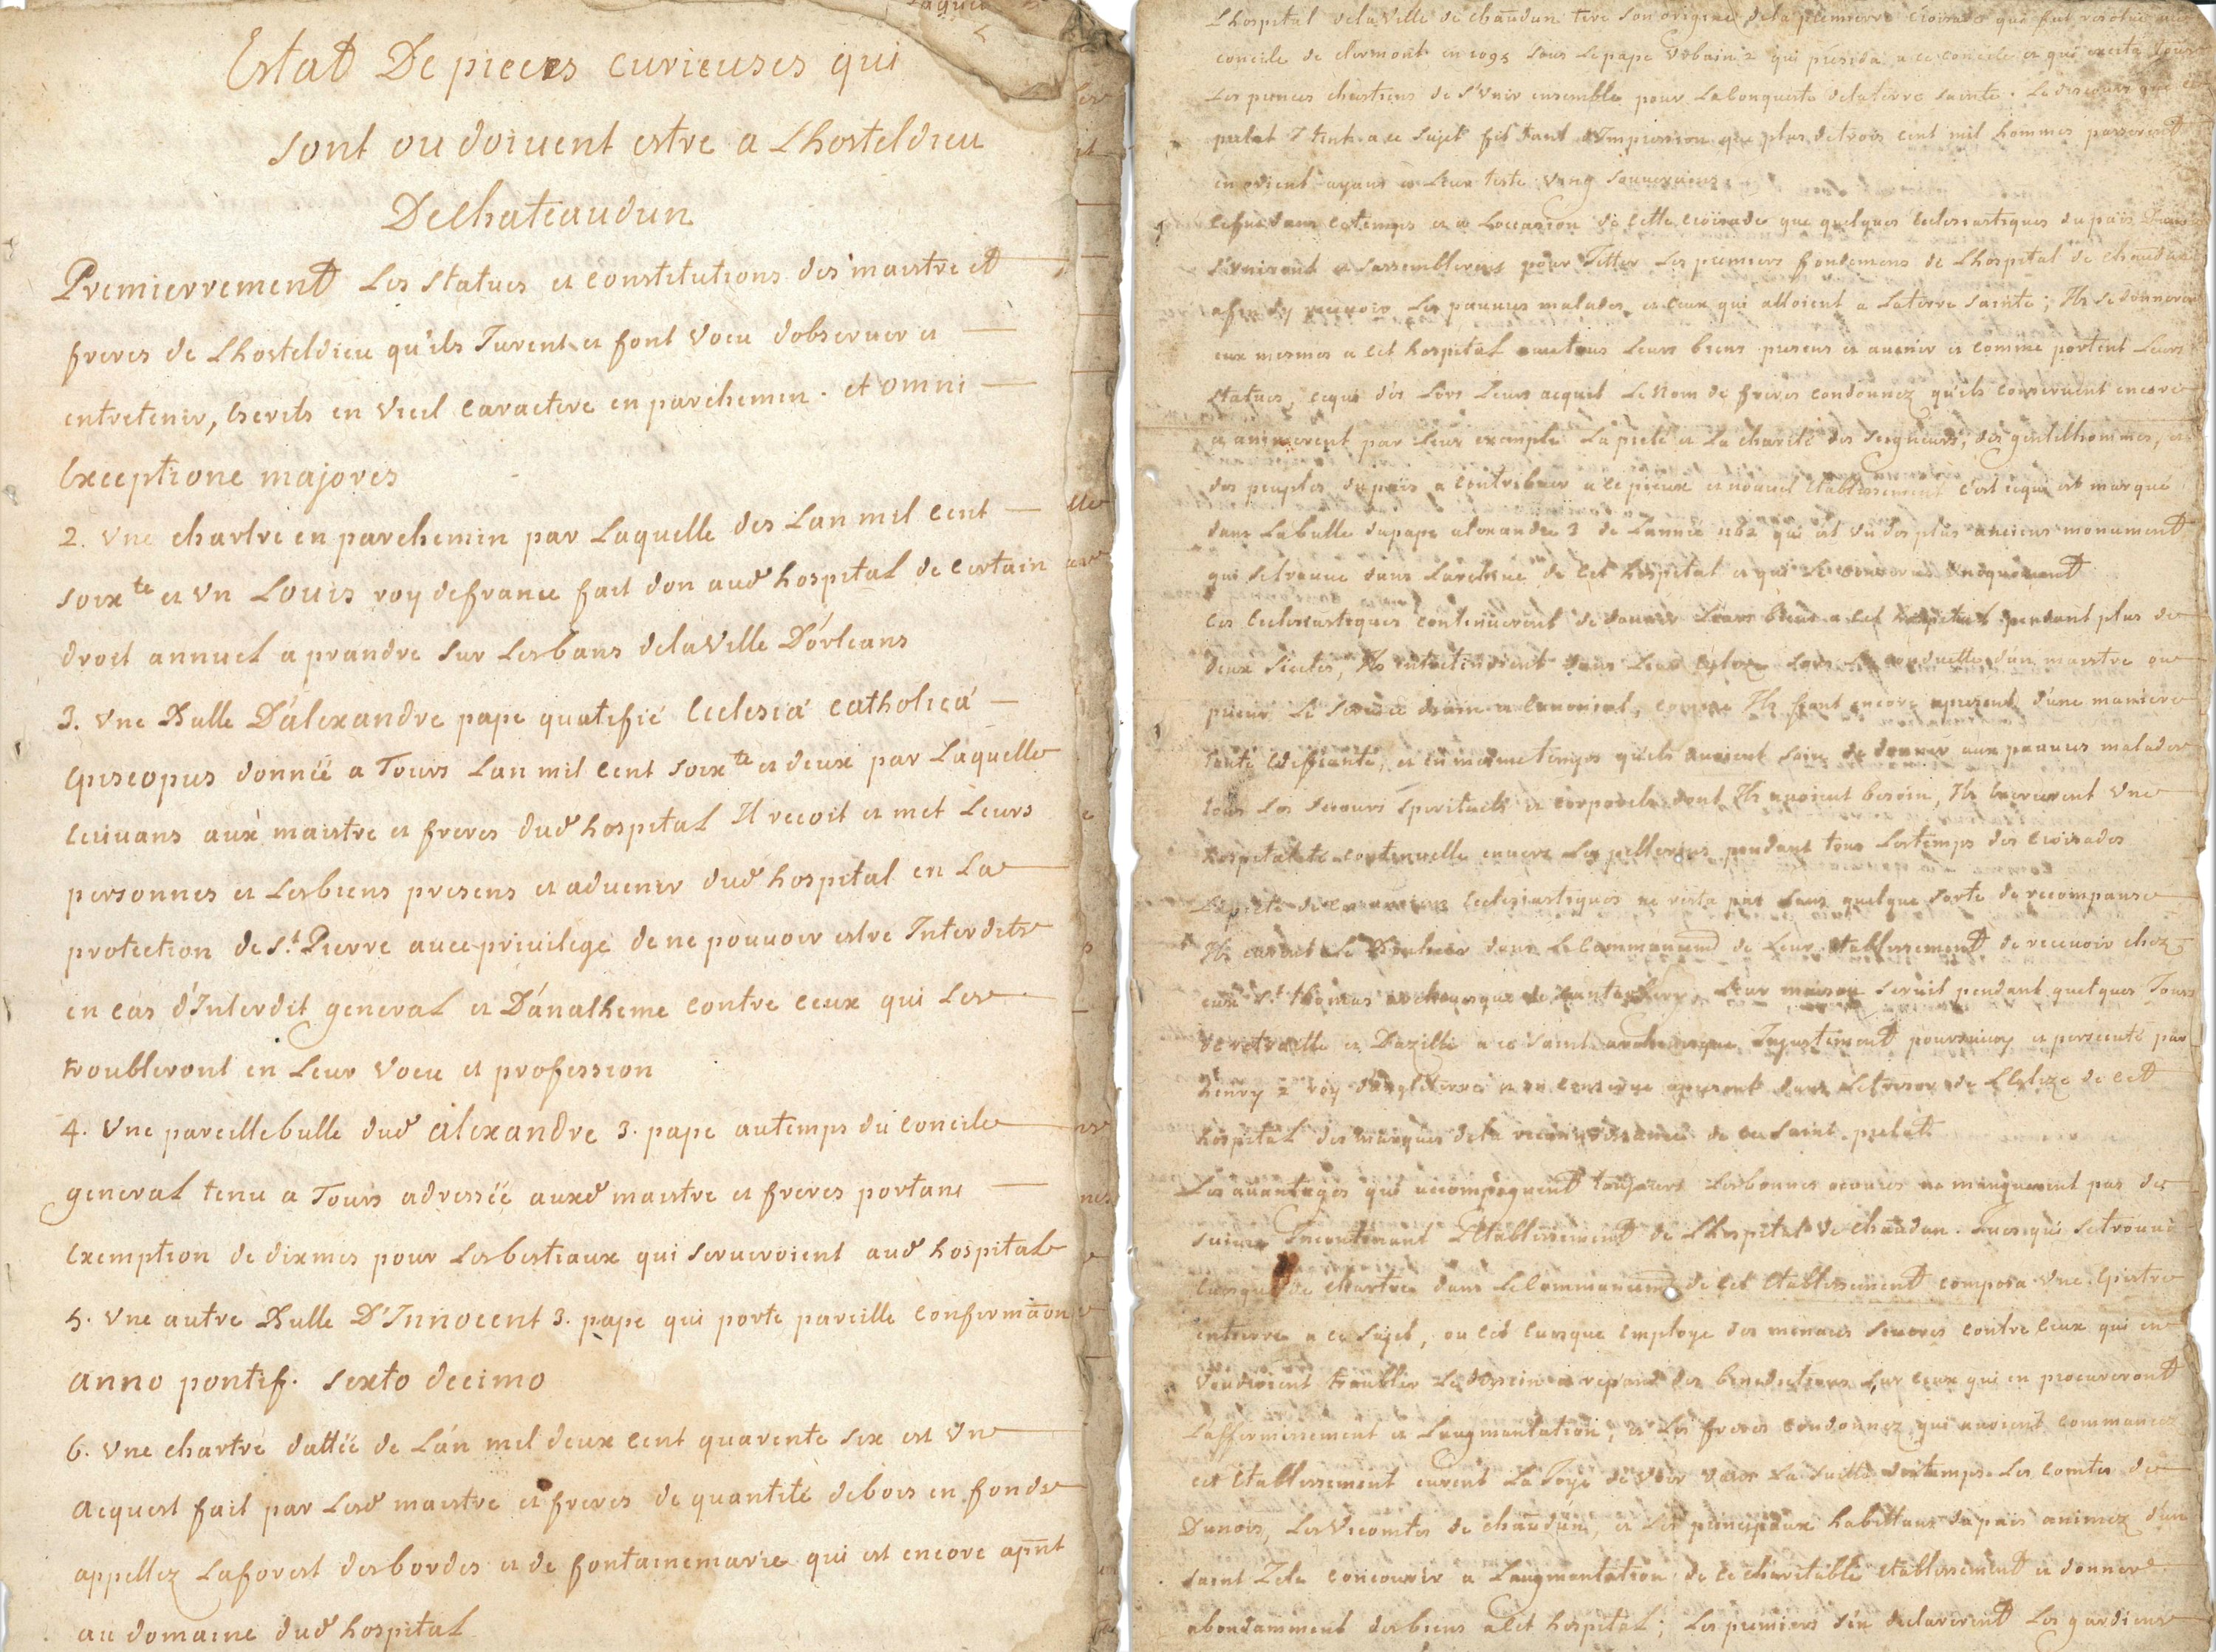 Estat De pieces curieuses qui
sont ou doivent estre a Lhosteldieu
Dechateaudun
Premierrement Les statues et constitutions des maistre et
freres de Lhosteldieu qu'ils Jurent et font voeu dobserver et
entretenir, Escrits en vieil caractere en parchemin. et omni
Exceptione majores
2. Vne chartre en parchemin par Laquelle des Lan mil cent
soixte et vn Louis roy defrance fait don aud hospital de certain
droit annuel a prandre sur Lesbans delaville D'orleans
3. Vne Bulle D'alexandre pape qualifié Ecclesia catholica
Episcopus donnéé a Tours Lan mil cent soixte et deux par Laquelle
Ecrivans aux maistre et freres dud hospital Il recoit et met Leurs
personnes et Lesbiens presens et advenir dud hospital en La
protection de St. Pierre avec privilege de ne pouvoir estre Interdits
en cas d'Interdit general et D'anatheme contre ceux qui Les
troubleront en Leur voeu et profession
4. Vne pareillebulle dud alexandre 3. pape autemps du concile
general tenu a Tours adresséé auxd maistre et freres portant
Exemption de dixmes pour Lesbestiaux qui serviroient aud hospital
5. Vne autre Bulle D'Innocent 3. pape qui porte pareille confirmaon
anno pontif. sexto decimo
6. Vne chartre dattéé de Lan mil deux cent quarente six est vn
acquest fait par Lesd maistre et freres de quantité debois en fonds
appellez Laforest desbordes et de fontainemarie qui est encore apnt
au domaine dud hospital
Lhospital delaville de chaudun tire son origine dela premierre croisade qui fut resolue au
concile de clermont en 1095 sous Lepape Vrbain 2 qui presida a ce concile et qui excita tous
Les princes chrestiens de s'vnir ensemble pour Laconqueste delaterre sainte. Le discours que ce
prelat tint a ce sujet fit tant d'Impression que plus detrois cent mil hommes passerent
en orient ayans a Leur teste vingt souverains
cefut dans cetemps et a Loccasion de cette croisade que quelques Ecclesiastiques du païs
s'vnirent et sassemblerent pour Jetter Les premiers fondemens de Lhospital de chaudun
afin dy recevoir Les pauvres malades et ceux qui alloient a Laterre sainte; Ils se donnerent
eux mesmes a cet hospital avectous Leurs biens presens et avenir et comme portent Leurs
statues, cequi dés Lors Leurs acquit Le Nom de freres condonnez qu'ils conservent encore
et animerent par Leur exemple La pieté et La charité des seigneurs, des gentilhommes, et
des peuples dupaïs a contribuer a ce pieux et nouvel Etablissement c'est cequi est marqué
dans Labulle dupape alexandre 3 de Lannée 1162 qui est vn des plus anciens monument
qui setrouve dans Larchive de cet hospital et qui se conserve
ces Ecclesiastiques continüerent de donner Leurs biens a cet hospital pendant plus de
deux siecles, Ils entretenoient dans Leur Eglise sous La conduitte d'un maistre ou
prieur Le service divin et canonial, comme Ils font encore apresent d'une maniere
toute Edifiante, et en mesmetemps qu'ils avoient soin de donner aux pauvres malades
tous Les secours spirituels et corporels dont Ils avoient besoin, Ils Exercerent vne
hospitalité continuelle envers Les pellerins pendant tous Lestemps des croisades
La pieté de ces Ecclesiastiques ne resta pas sans quelque sorte de recompanse
Ils eurent Le Bonheur dans Le Commancemt de Leur etablissement de recevoir chez
eux St. thomas archevesque de Cantorbery, Leur maison servit pendant quelques Jours
deretraitte et Dazille a ce saint archevesque Injustement poursuivy et persecuté par
henry 2 roy d'angleterre et on conserve apresent dans Letresor de LEglize de cet
hospital des marques dela reconnoissance de ce saint prelat
Les avantages qui accompagnent toujours Lesbonnes oeuvres ne manquerent pas de
suivre Incontinant LEtablissement de Lhospital de chaudun. Ives qui setrouva
Evesque de chartres dans Lecommancemt de cet Etablissement composa vne Epistre
entierre a ce sujet, ou cet Evesque Employe des menaces severes contre Ceux qui en
voudroient troubler Le dessein et repand des benedictions sur ceux qui en procureront
Laffermissement et Laugmentation, et Les freres condonnez qui avoient commancez
cet Etablissement eurent La Joye de voir dans La suitte dutemps Les comtes de
Dunois, Les Vicomtes de chaudun, et Les principaux habittans dupaïs animez d'un
saint Zele concourir a Laugmentation de ce charitable etablissement et donner
abondamment desbiens acet hospital; Les premiers s'en declarerent Les gardiens